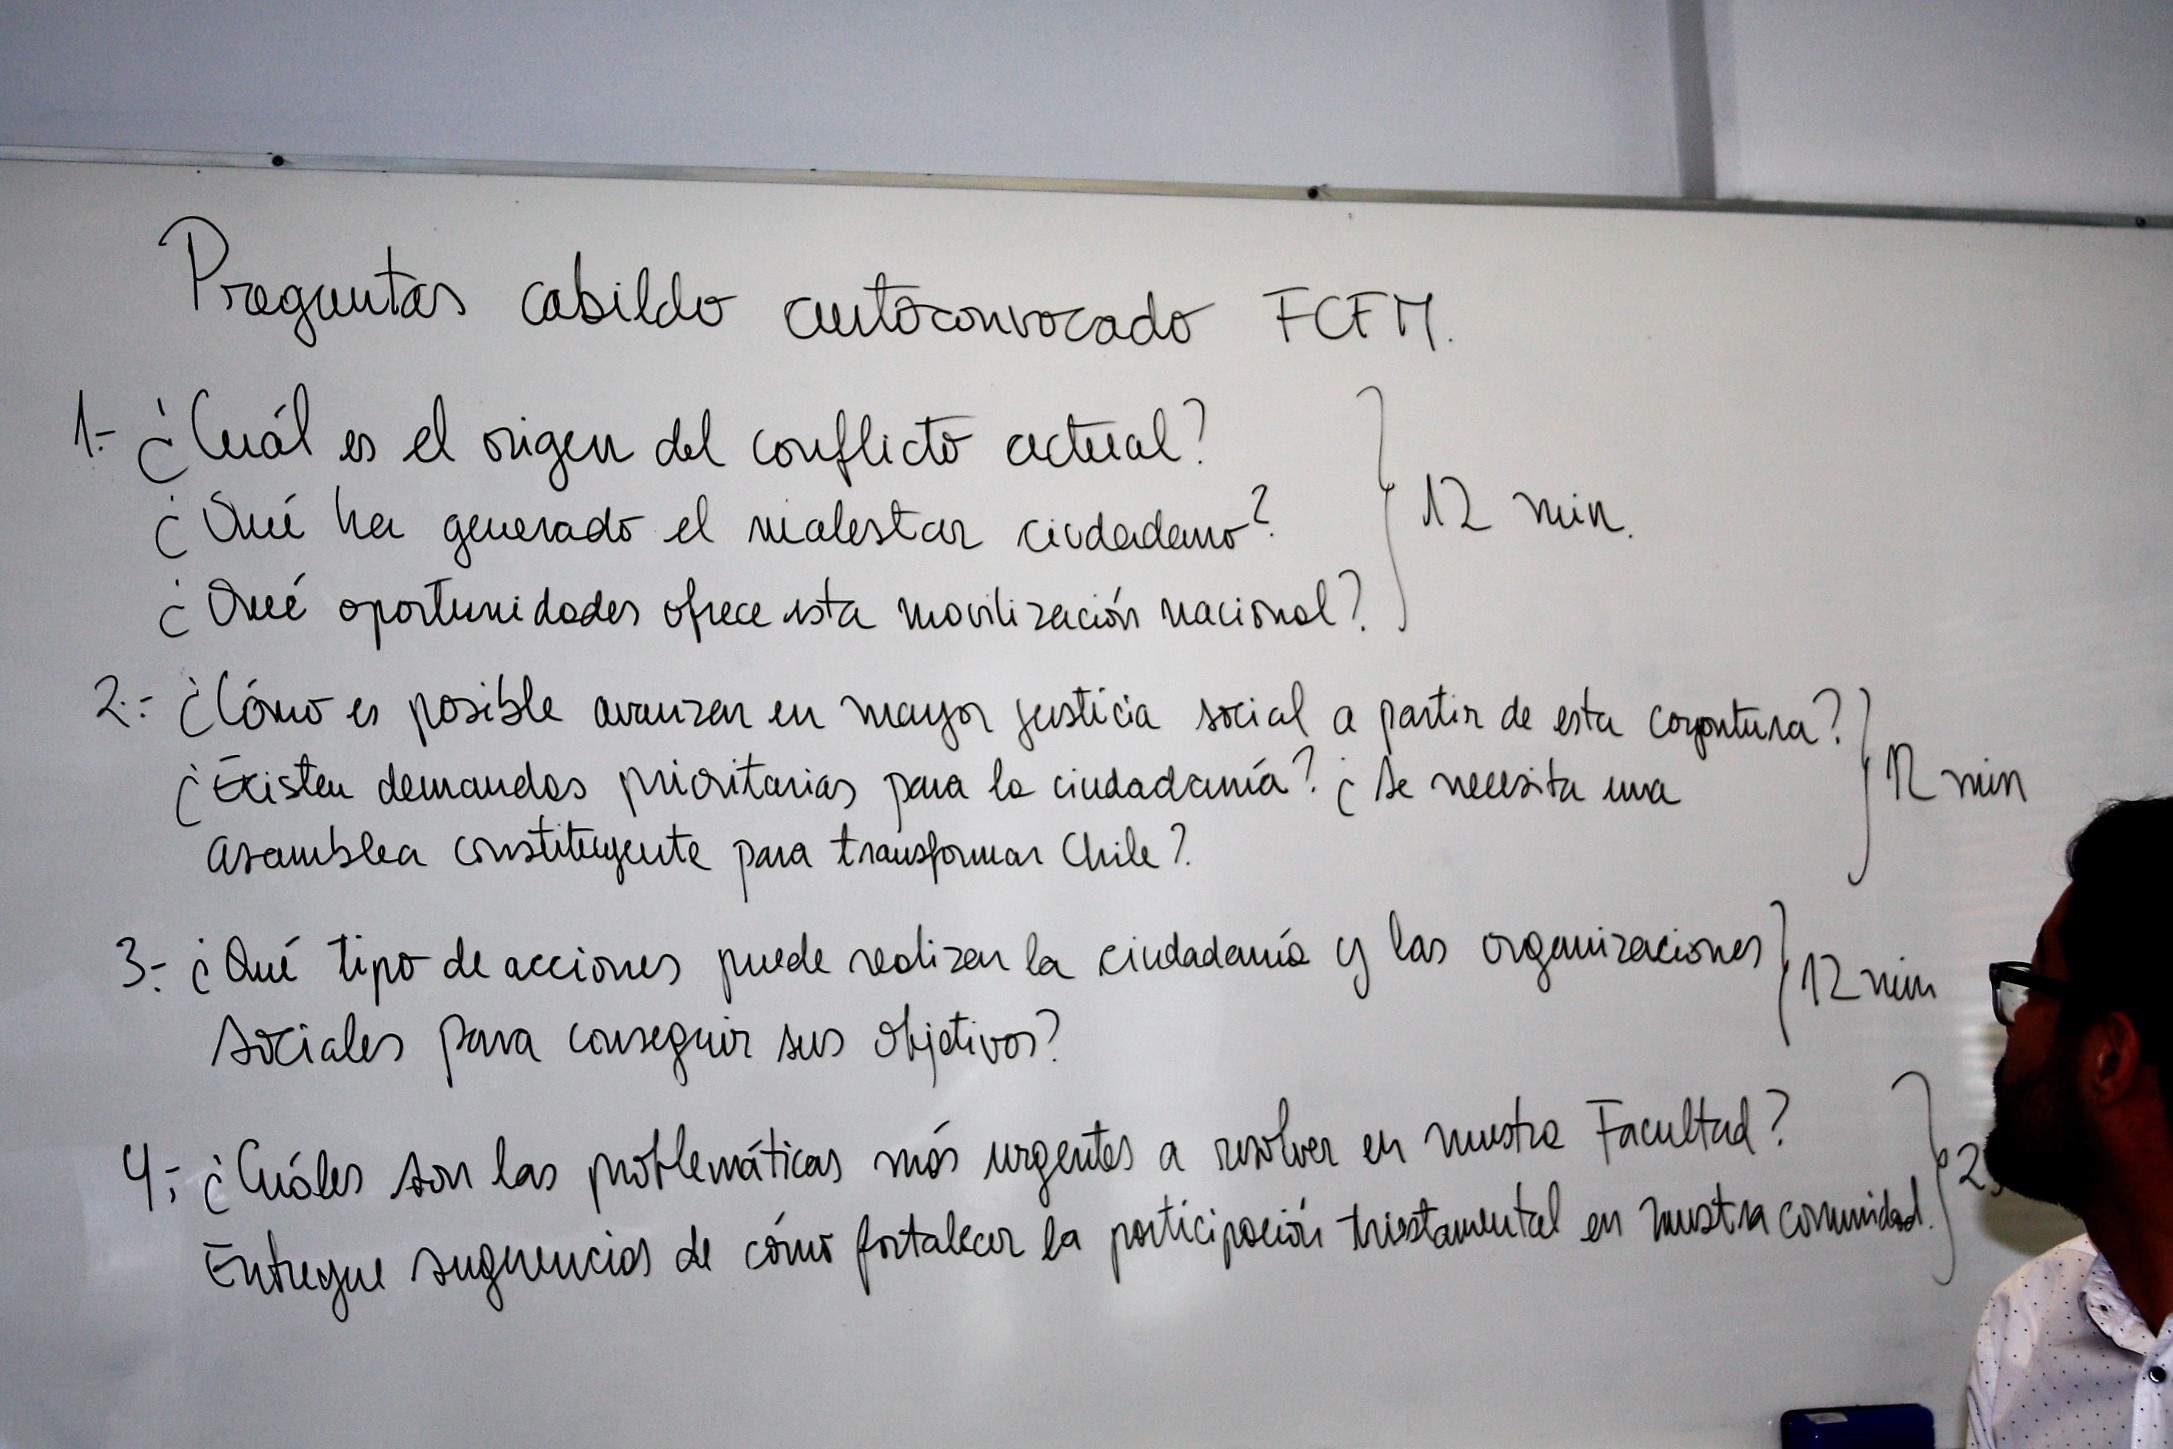 Preguntas cabildo autoconvocado FCFM.
1.- ¿Cuál es el origen del conflicto actual?
¿Qué ha generado el malestar ciudadano?
¿Qué oportunidades ofrece esta movilización nacional?
12 min.
2.- ¿Cómo es posible avanzar en mayor justicia social a partir de esta coyontura?
¿Existen demandas prioritarias para la ciudadanía? ¿Se necesita una
asamblea constituyente para transformar Chile?
12 min
3.- ¿Qué tipo de acciones puede realizar la ciudadanía y las organizaciones
sociales para conseguir sus objetivos?
12 min
4.- ¿Cuáles son las problemáticas más urgentes a resolver en nuestra Facultad?
Entregue sugerencias de cómo fortalecer la participación triestamental en nuestra comunidad.